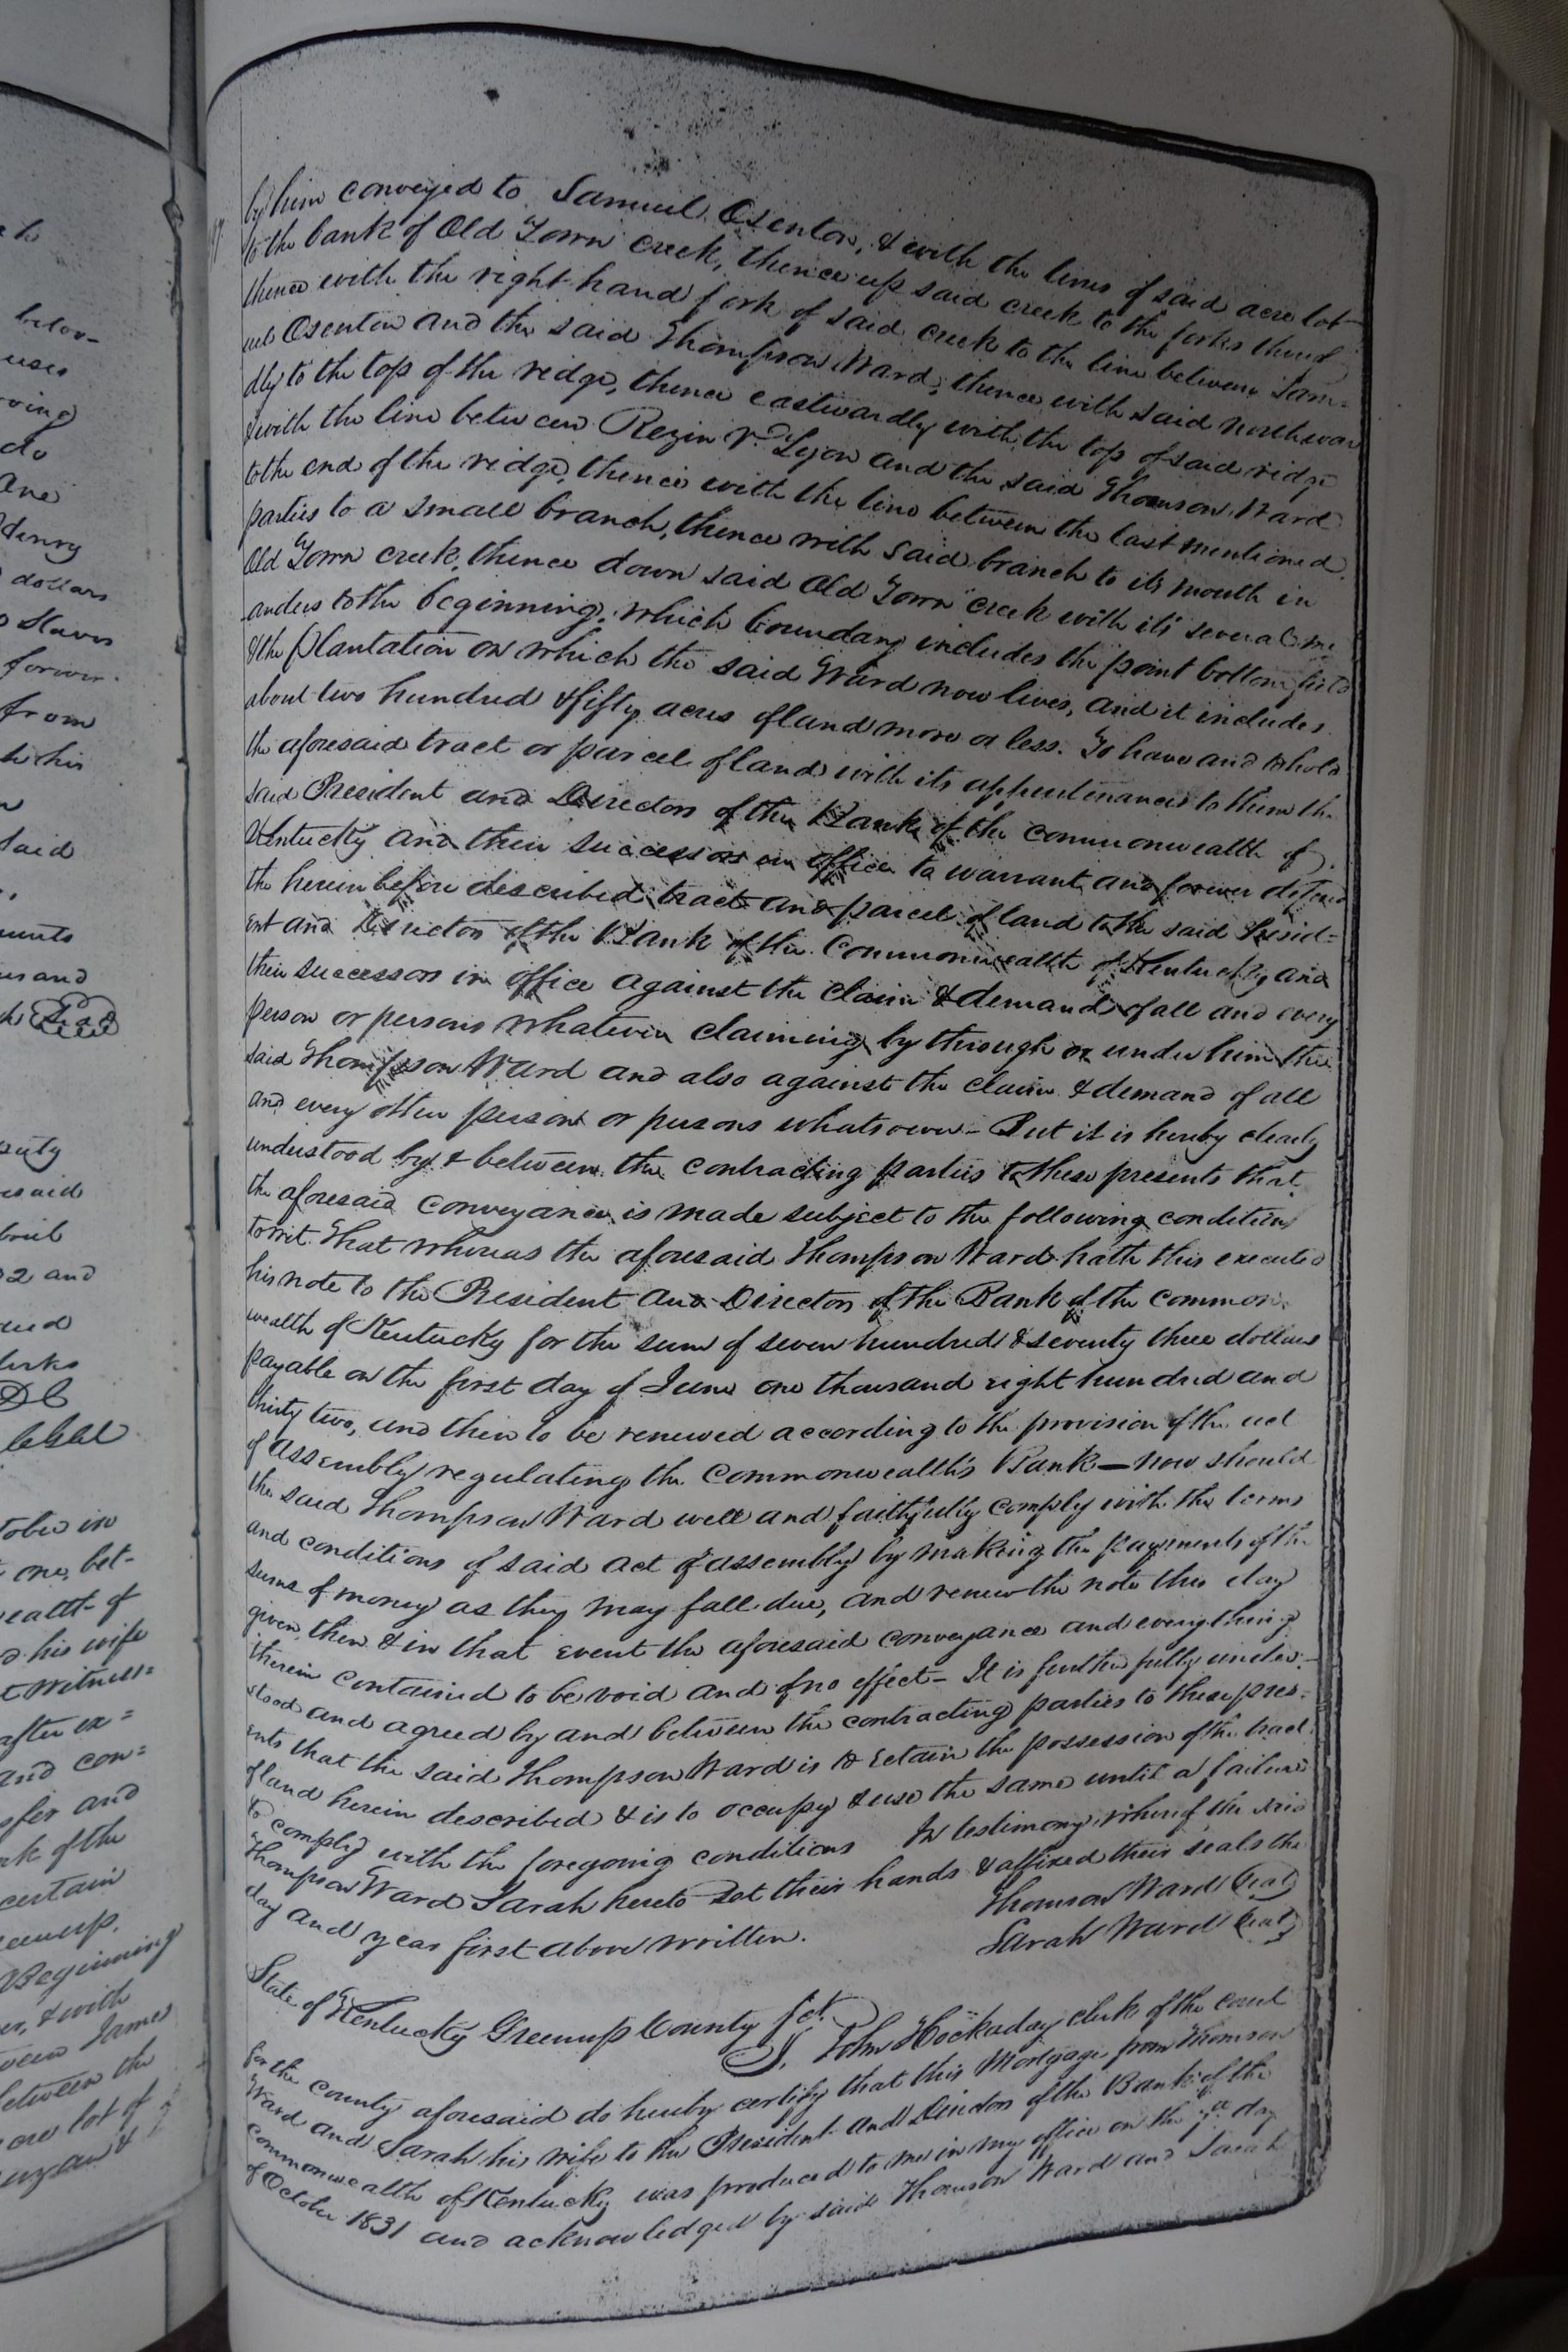 by him conveyed to Samuel Osenton, & with the lines of said acre lot
to the bank of Old Town creek, thence up said creek to the forks thence
thence with the right hand fork of said creek to the line between Sam=
uel Osenton and the said Thompson Ward, thence with said northwar
dly to the top of the ridge, thence eastwardly with the top of said ridge
& with the line between Rezin Lyon and the said Thomson Ward
to the end of the ridge, thence with the line between the last mentioned
parties to a small branch, thence with said branch to its mouth in
Old Town creek, thence down said Old Town creek with its several me
anders to the beginning, which boundary includes the point bottom field
& the Plantation on which the said Ward now lives, and it includes
about two hundred & fifty acres of land more or less. To have and to hold
the aforesaid tract or parcel of land with its appurtenances to them the
said President and Directors of the Bank of the commonwealth of
Kentucky and their successors in office to warrant and forever defend
the herein before described tract and parcel of land to the said Presid=
ent and Directors of the Bank of the Commonwealth of Kentucky and
their successors in office against the claim & demand of all and every
person or persons whatever claiming by through or under him the
said Thompson Ward and also against the claim & demand of all
and every other person or persons whatsoever - But it is hereby clearly
understood by & between the contracting parties to these presents that
the aforesaid conveyance is made subject to the following conditions
towit. That whereas the aforesaid Thompson Ward hath this executed
his note to the President and Directors of the Bank of the common
wealth of Kentucky for the sum of seven hundred & seventy three dollars
payable on the first day of June one thousand eight hundred and
thirty two, and then to be renewed according to the provision of the act
of assembly regulating the Commonwealth's Bank — now should
the said Thompson Ward well and faithfully comply with the terms
and conditions of said act of assembly by making the payments of the
sums of money as they may fall due, and renew the note this day
given, then & in that event the aforesaid conveyance and everything
therein contained to be void and of no effect - It is further fully under=
stood and agreed by and between the contracting parties to these pres=
ents that the said Thompson Ward is to retain the possession of the tract
of land herein described & is to occupy & use the same until a failure
to comply with the foregoing conditions In testimony whereof the said
Thompson Ward Sarah hereto set their hands & affixed their seals the
day and year first above written.
Thomson Ward Seal
Sarah Ward Seal
State of Kentucky Greenup County Sct.
I, John Hockaday clerk of the court
for the county aforesaid do hereby certify that this Mortgage from Thomson
Ward and Sarah his wife to the President and Directors of the Bank of the
commonwealth of Kentucky was produced to me in my office on the day
of October 1831 and acknowledged by said Thomson Ward and Sarah